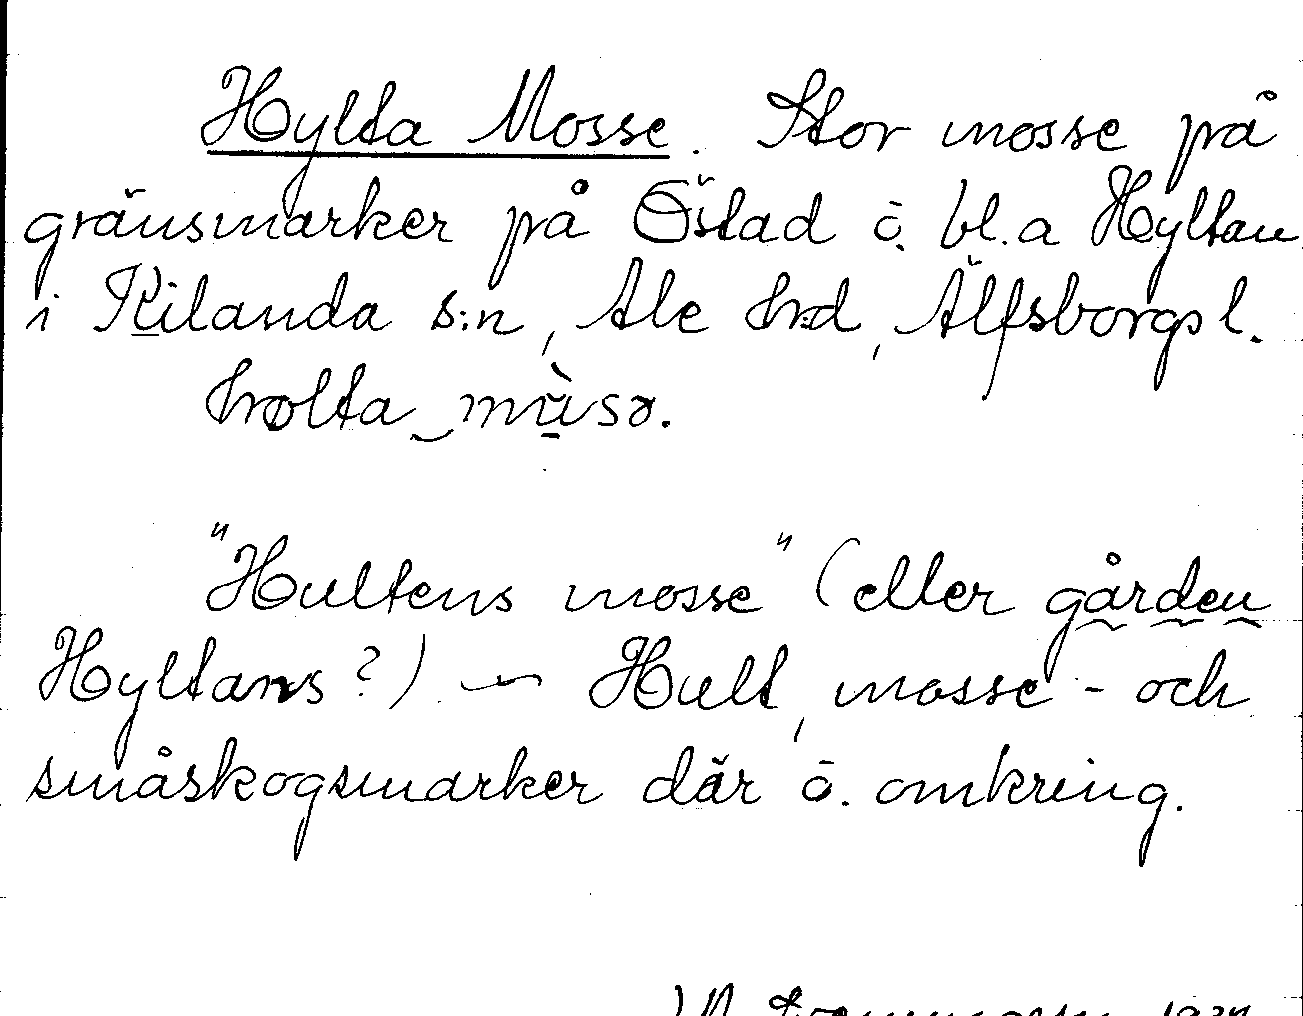 Hylta Mosse. Stor mosse på
gränsmarker på Östad o. bl.a Hyltan
i Kilanda s:n, Ale hrd, Älfsborgs l.
"Hultens mosse" (eller gården
Hyltans?) — Hult, mosse- och
småskogsmarker där o. omkring.